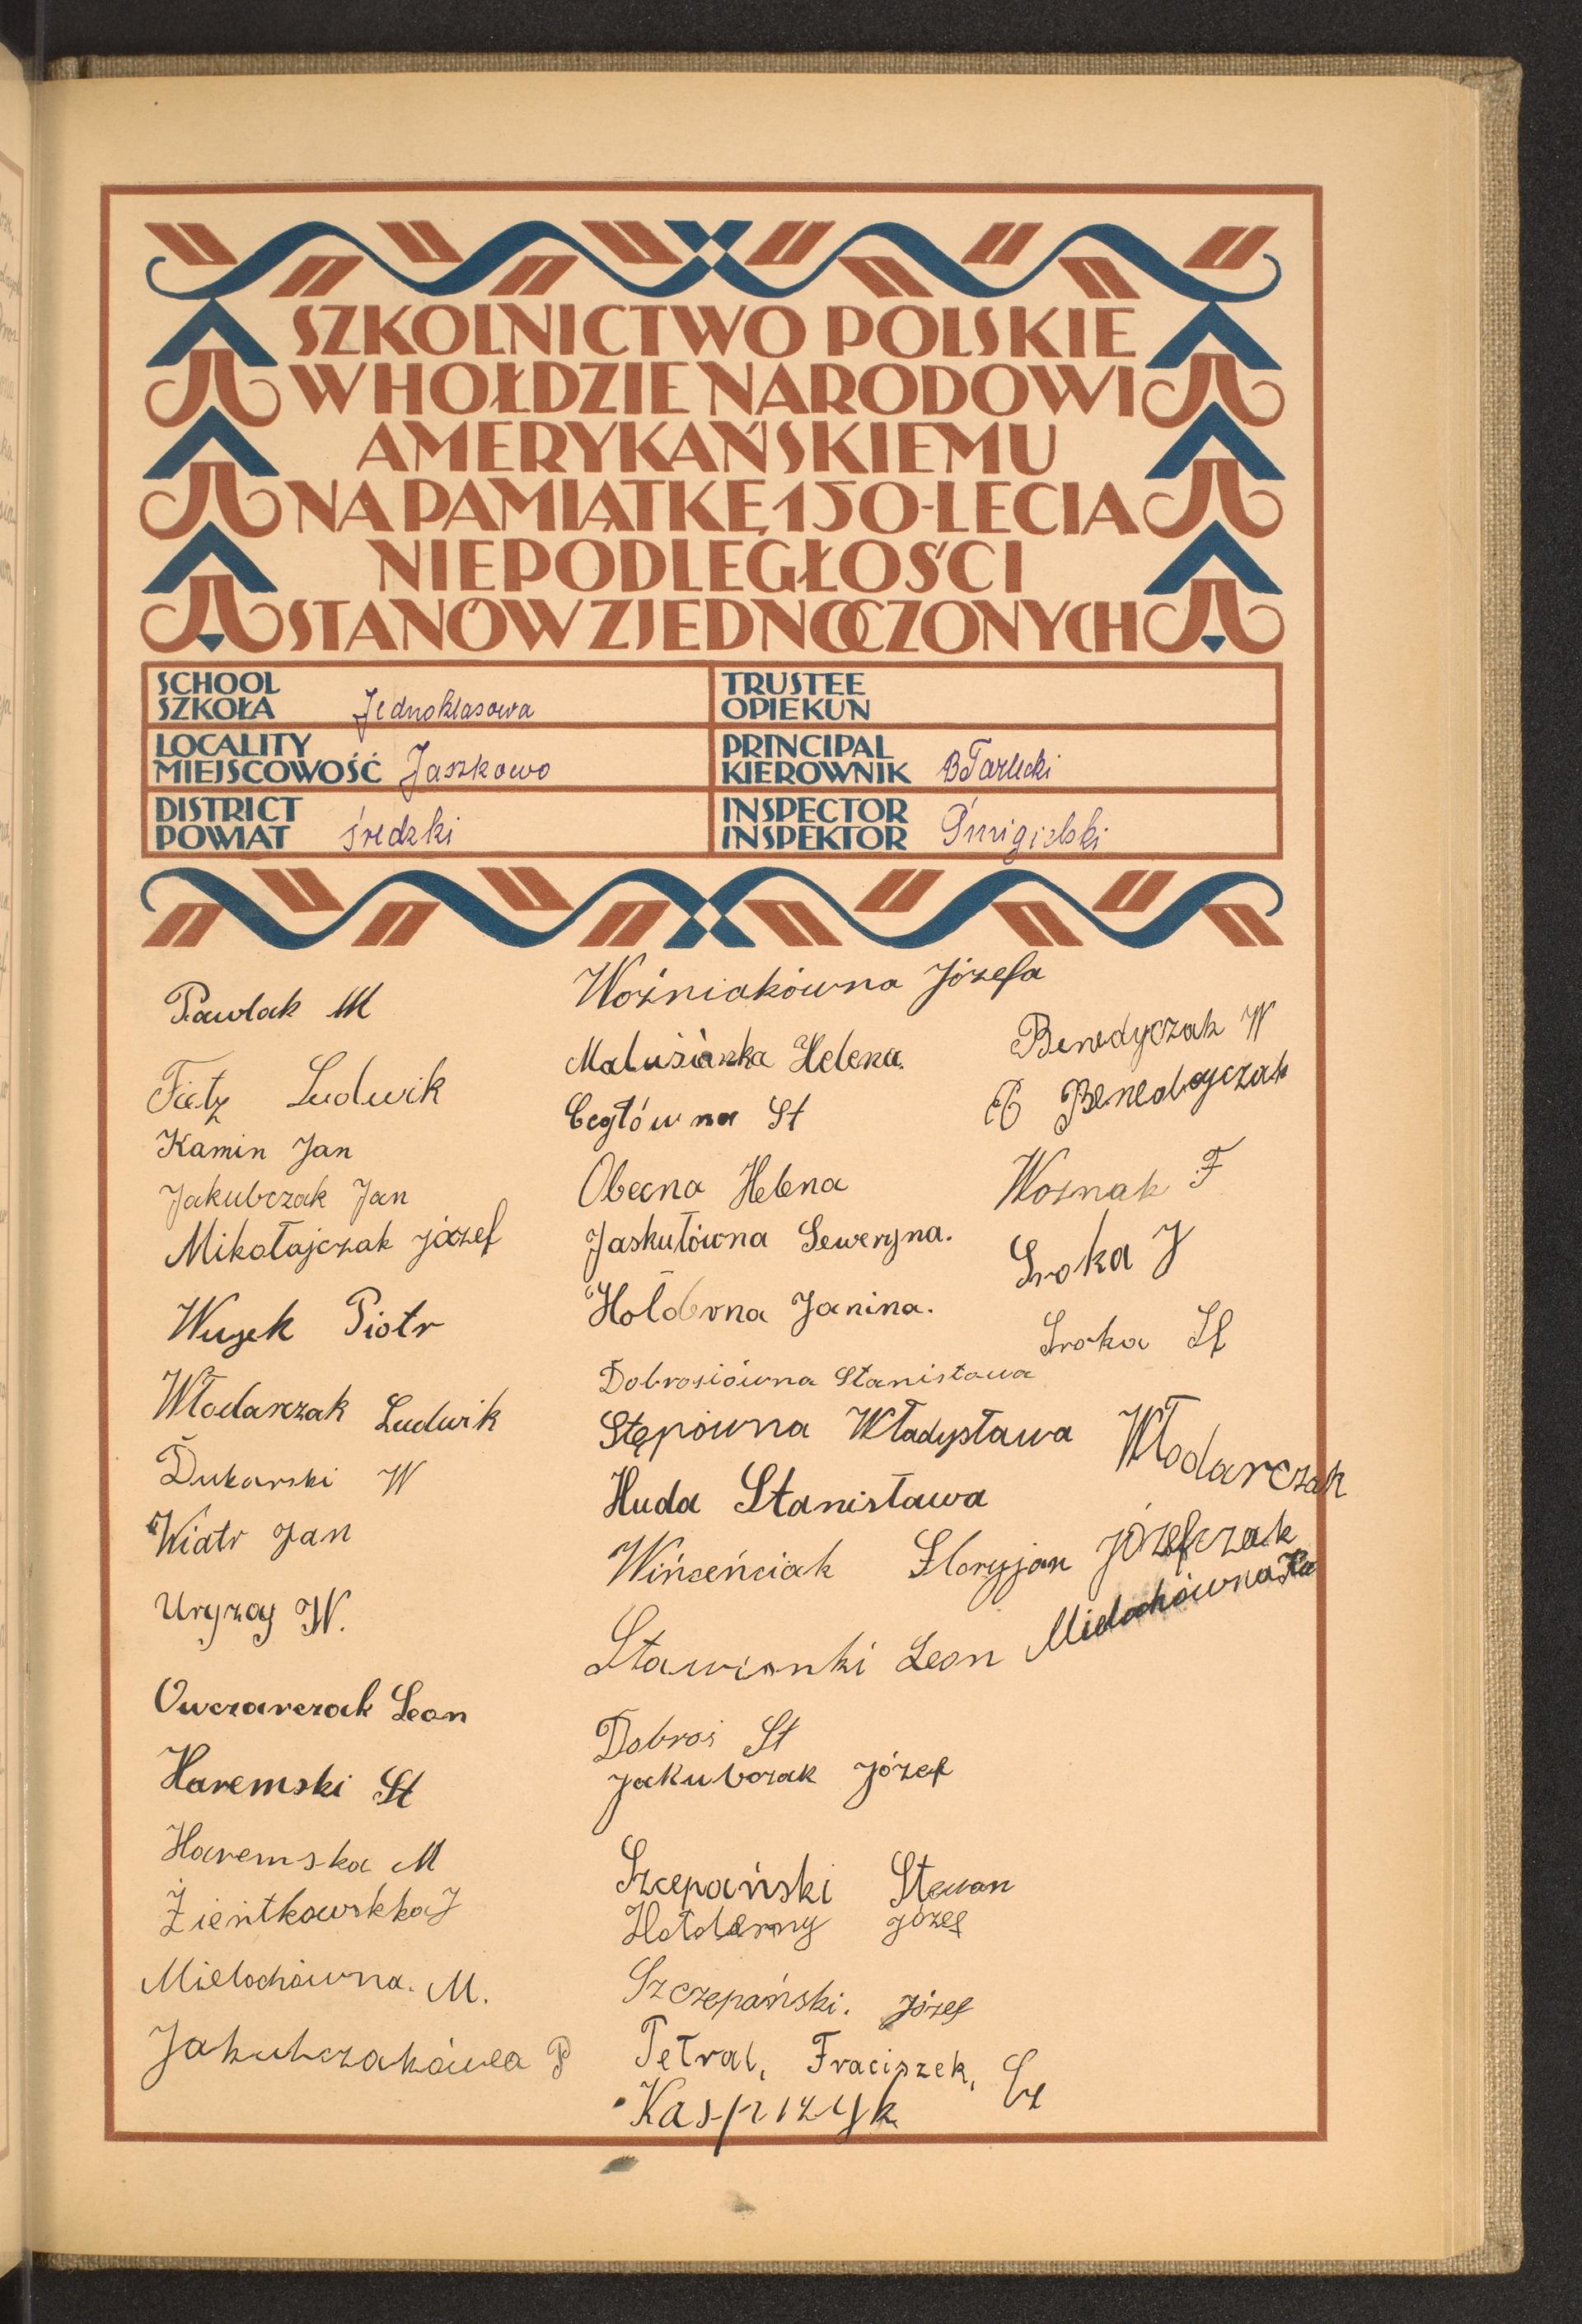 SZKOLNICTWO POLSKIE
W HOŁDZIE NARODOWI
AMERYKAŃSKIEMU
NA PAMIĄTKĘ 150-LECIA
NIEPODLEGŁOŚCI
STANÓW ZJEDNOCZONYCH
SCHOOL
SZKOŁA Jednoklasowa
TRUSTEE
OPIEKUN
LOCALITY
MIEJSCOWOŚĆ Jaszkowo
PRINCIPAL
KIEROWNIK B Tarlecki
DISTRICT
POWIAT średzki
INSPECTOR
INSPEKTOR Śmigielski
Pawlak M
Fietz Ludwik
Kamin Jan
Jakubczak Jan
Mikołajczak józef
Wuzek Piotr
Włodarczak Ludwik
Dukarski W
Wiatr Jan
Uryzaj W.
Owczarczak Leon
Haremski St
Haremska M
Zientkowskka J
Mielochówna. M.
Jakubczakówna P
Woźniakówna Józefa
Malusiànka Helena.
Cegłówna St
Obecna Helena
Jaskułówna Seweryna.
Hołdorna Janina.
Dobrosiówna Stanisława
Stępówna Władysława
Huda Stanisława
Wińceńciak Floryjan
Stawianki Leon
Dobroś St
Jakubczak Józef
Szcepański Stewan
Hołderny józef
Szczepański. Józef
Petral, Fraciszek,
Kasprzyk
Benedyczak W
Benedayczak
Woznak F
Sroka J
Sroka St
Włodarczak
józefczak
Mielochówna Ka